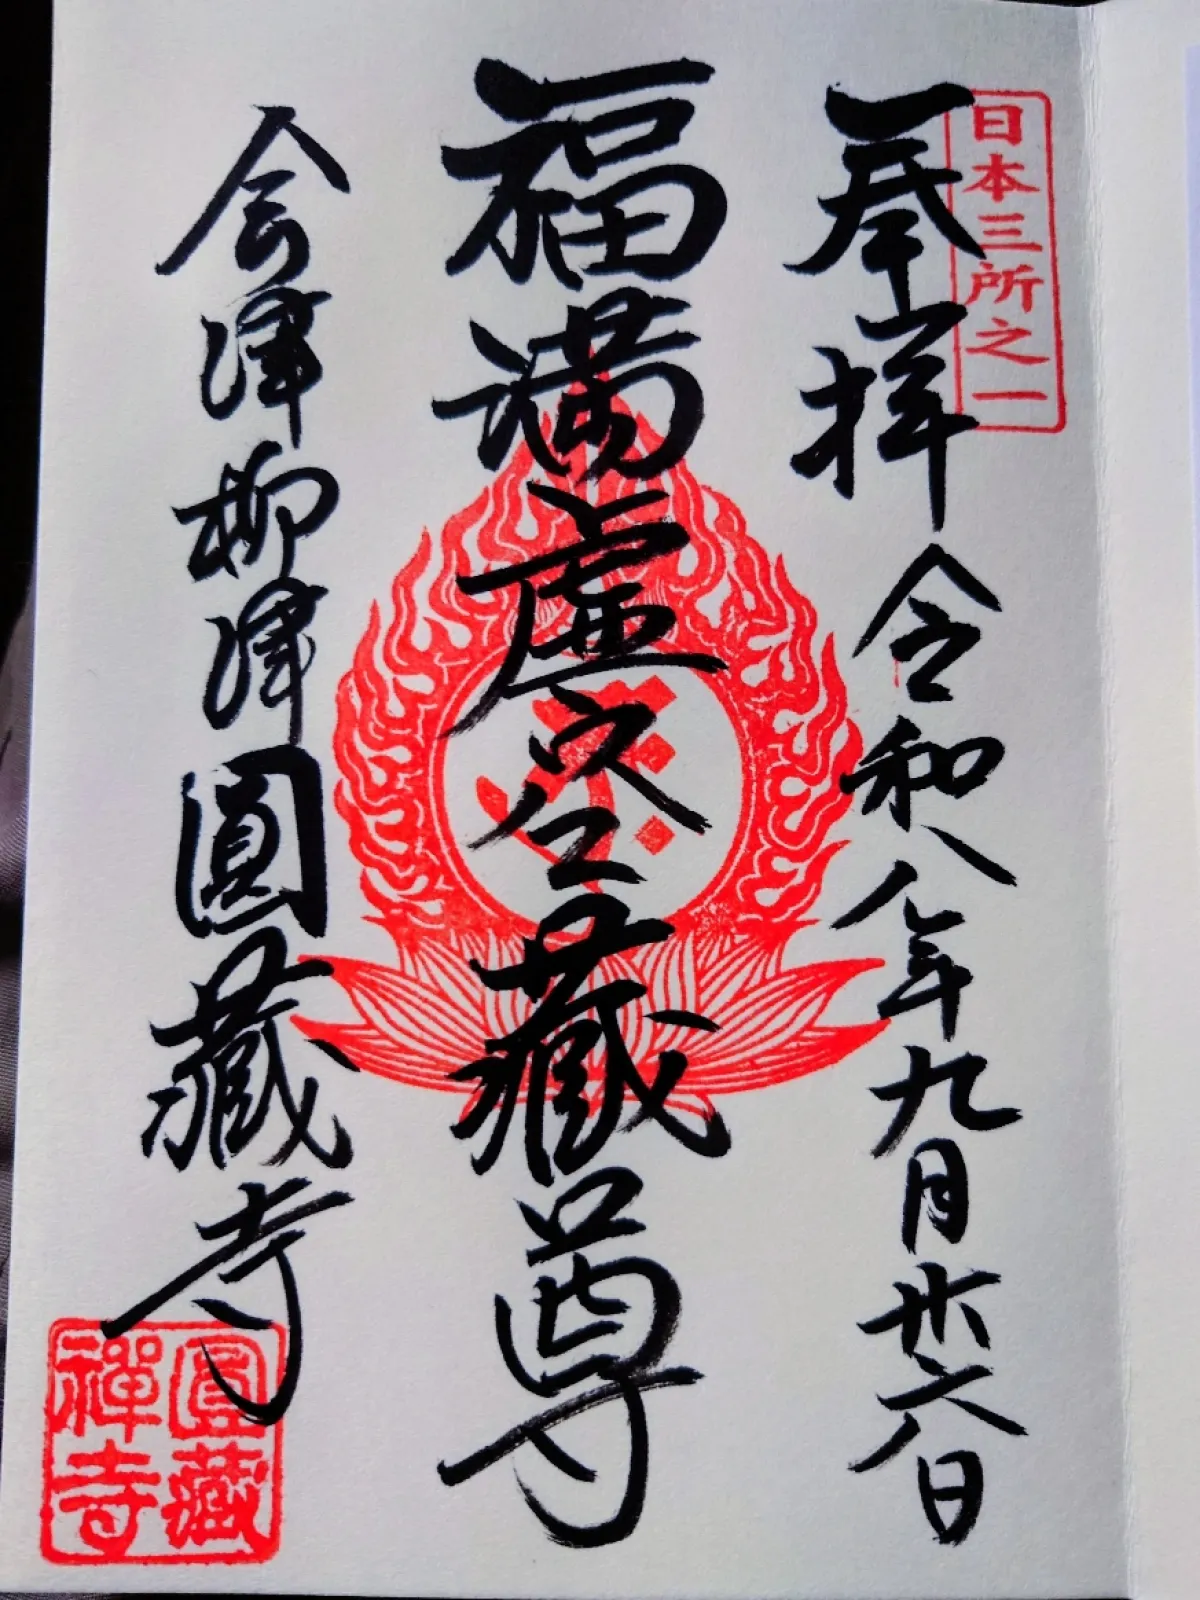 日本三所之一
奉拝 令和八年九月廿六日
福満虚空藏尊
会津柳津圓藏寺
圓藏
禪寺